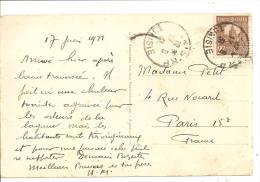 17 Juin 1938
Arrivé hier après
bonne traversée. Il
fait ici une chaleur
torride aggravée par
les odeurs de la
lagune, mais les
habitants sont très
et pour une fois cela fait
se refléter. Demain Bizerte
Meilleurs Baisers à tous
H. M.
TUNISIE
Madame Petit
4 Rue Nouard
Paris 15e
France